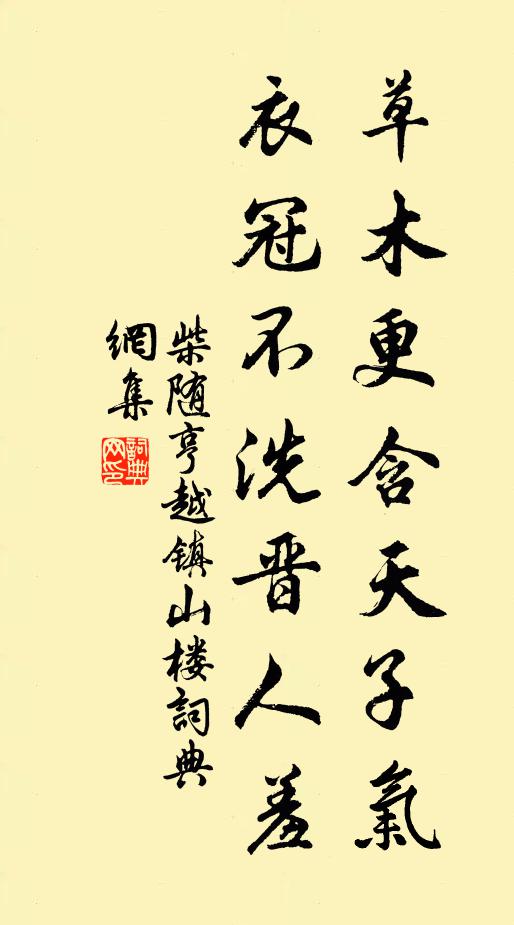 草木更含天子氣
衣冠不洗晋人羞
柴随亨越鎮山楼詞典
網集
詞典網印